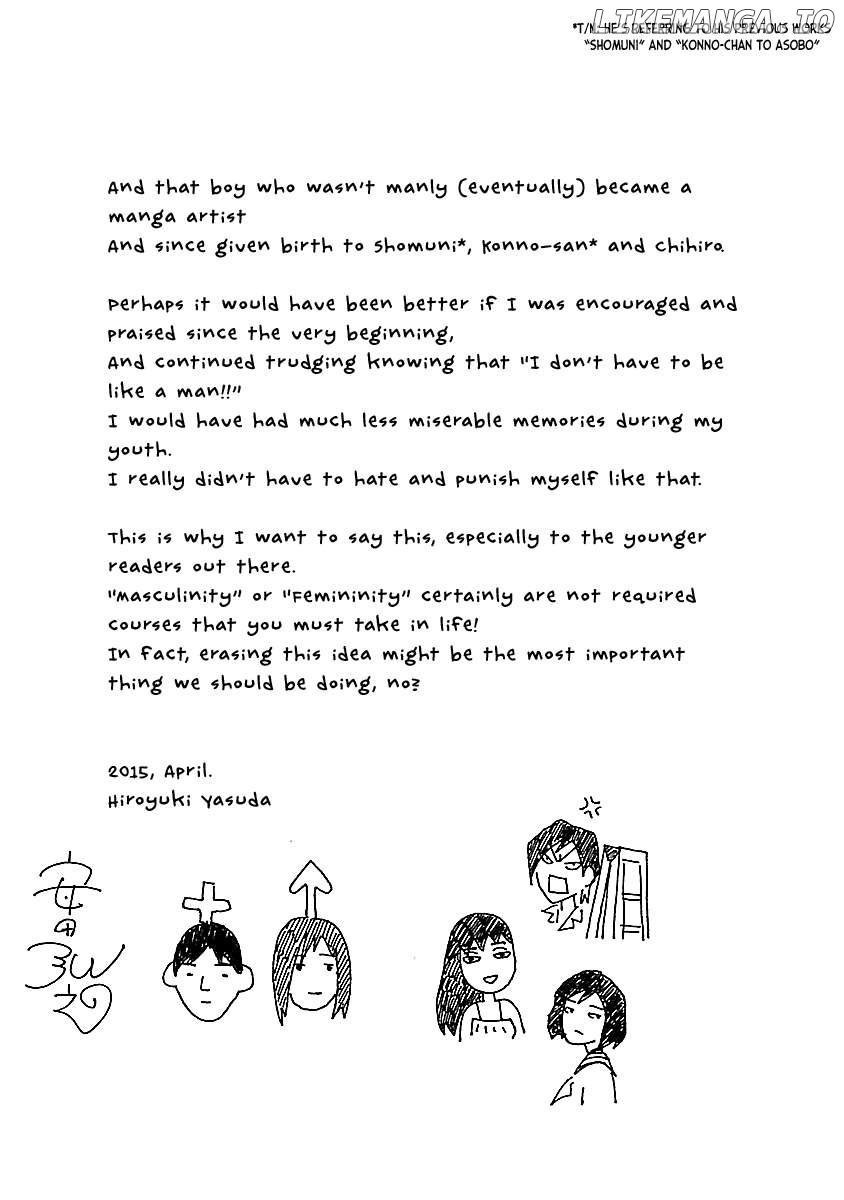 LIKEMANGA.TO
*T/N: HE'S REFERRING TO HIS PREVIOUS WORKS
"SHOMUNI" AND "KONNO-CHAN TO ASOBO"
And that boy who wasn't manly (eventually) became a
manga artist
And since given birth to Shomuni*, Konno-san* and Chihiro.
Perhaps it would have been better if I was encouraged and
praised since the very beginning,
And continued trudging knowing that "I don't have to be
like a man!!"
I would have had much less miserable memories during my
youth.
I really didn't have to hate and punish myself like that.
This is why I want to say this, especially to the younger
readers out there.
"Masculinity" or "Femininity" certainly are not required
courses that you must take in life!
In fact, erasing this idea might be the most important
thing we should be doing, no?
2015, April.
Hiroyuki Yasuda
安田
弘之